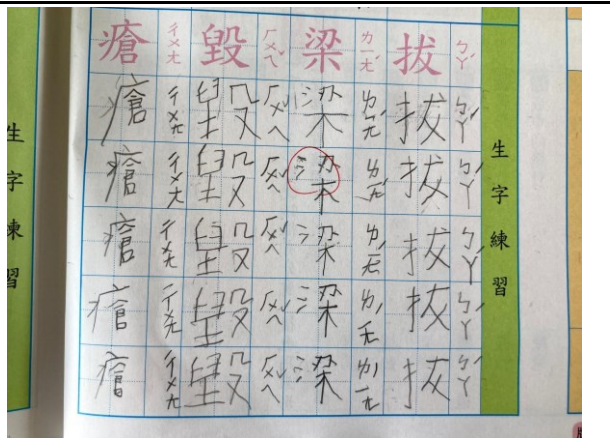 生字練習
拔ㄅㄚˊ 拔ㄅㄚˊ 拔ㄅㄚˊ 拔ㄅㄚˊ 拔ㄅㄚˊ 拔ㄅㄚˊ
梁ㄌㄧㄤˊ 梁ㄌㄧㄤˊ 梁ㄌㄧㄤˊ 梁ㄌㄧㄤˊ 梁ㄌㄧㄤˊ 梁ㄌㄧㄤˊ
毀ㄏㄨㄟˇ 毀ㄏㄨㄟˇ 毀ㄏㄨㄟˇ 毀ㄏㄨㄟˇ 毀ㄏㄨㄟˇ 毀ㄏㄨㄟˇ
瘡ㄔㄨㄤ 瘡ㄔㄨㄤ 瘡ㄔㄨㄤ 瘡ㄔㄨㄤ 瘡ㄔㄨㄤ 瘡ㄔㄨㄤ
生字練習